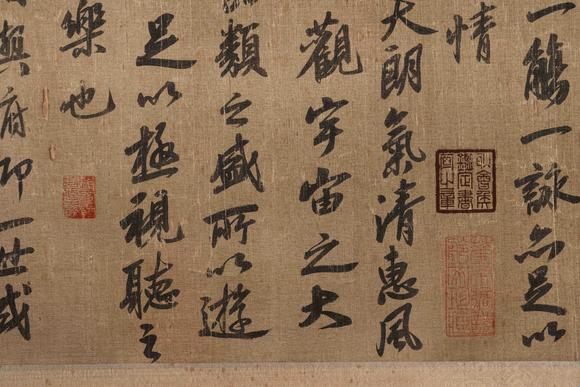 一觴一詠亦足以
情
大朗氣清惠風
觀宇宙之大
類之盛所以遊
足以極視聽之
樂也
與府仰一世或